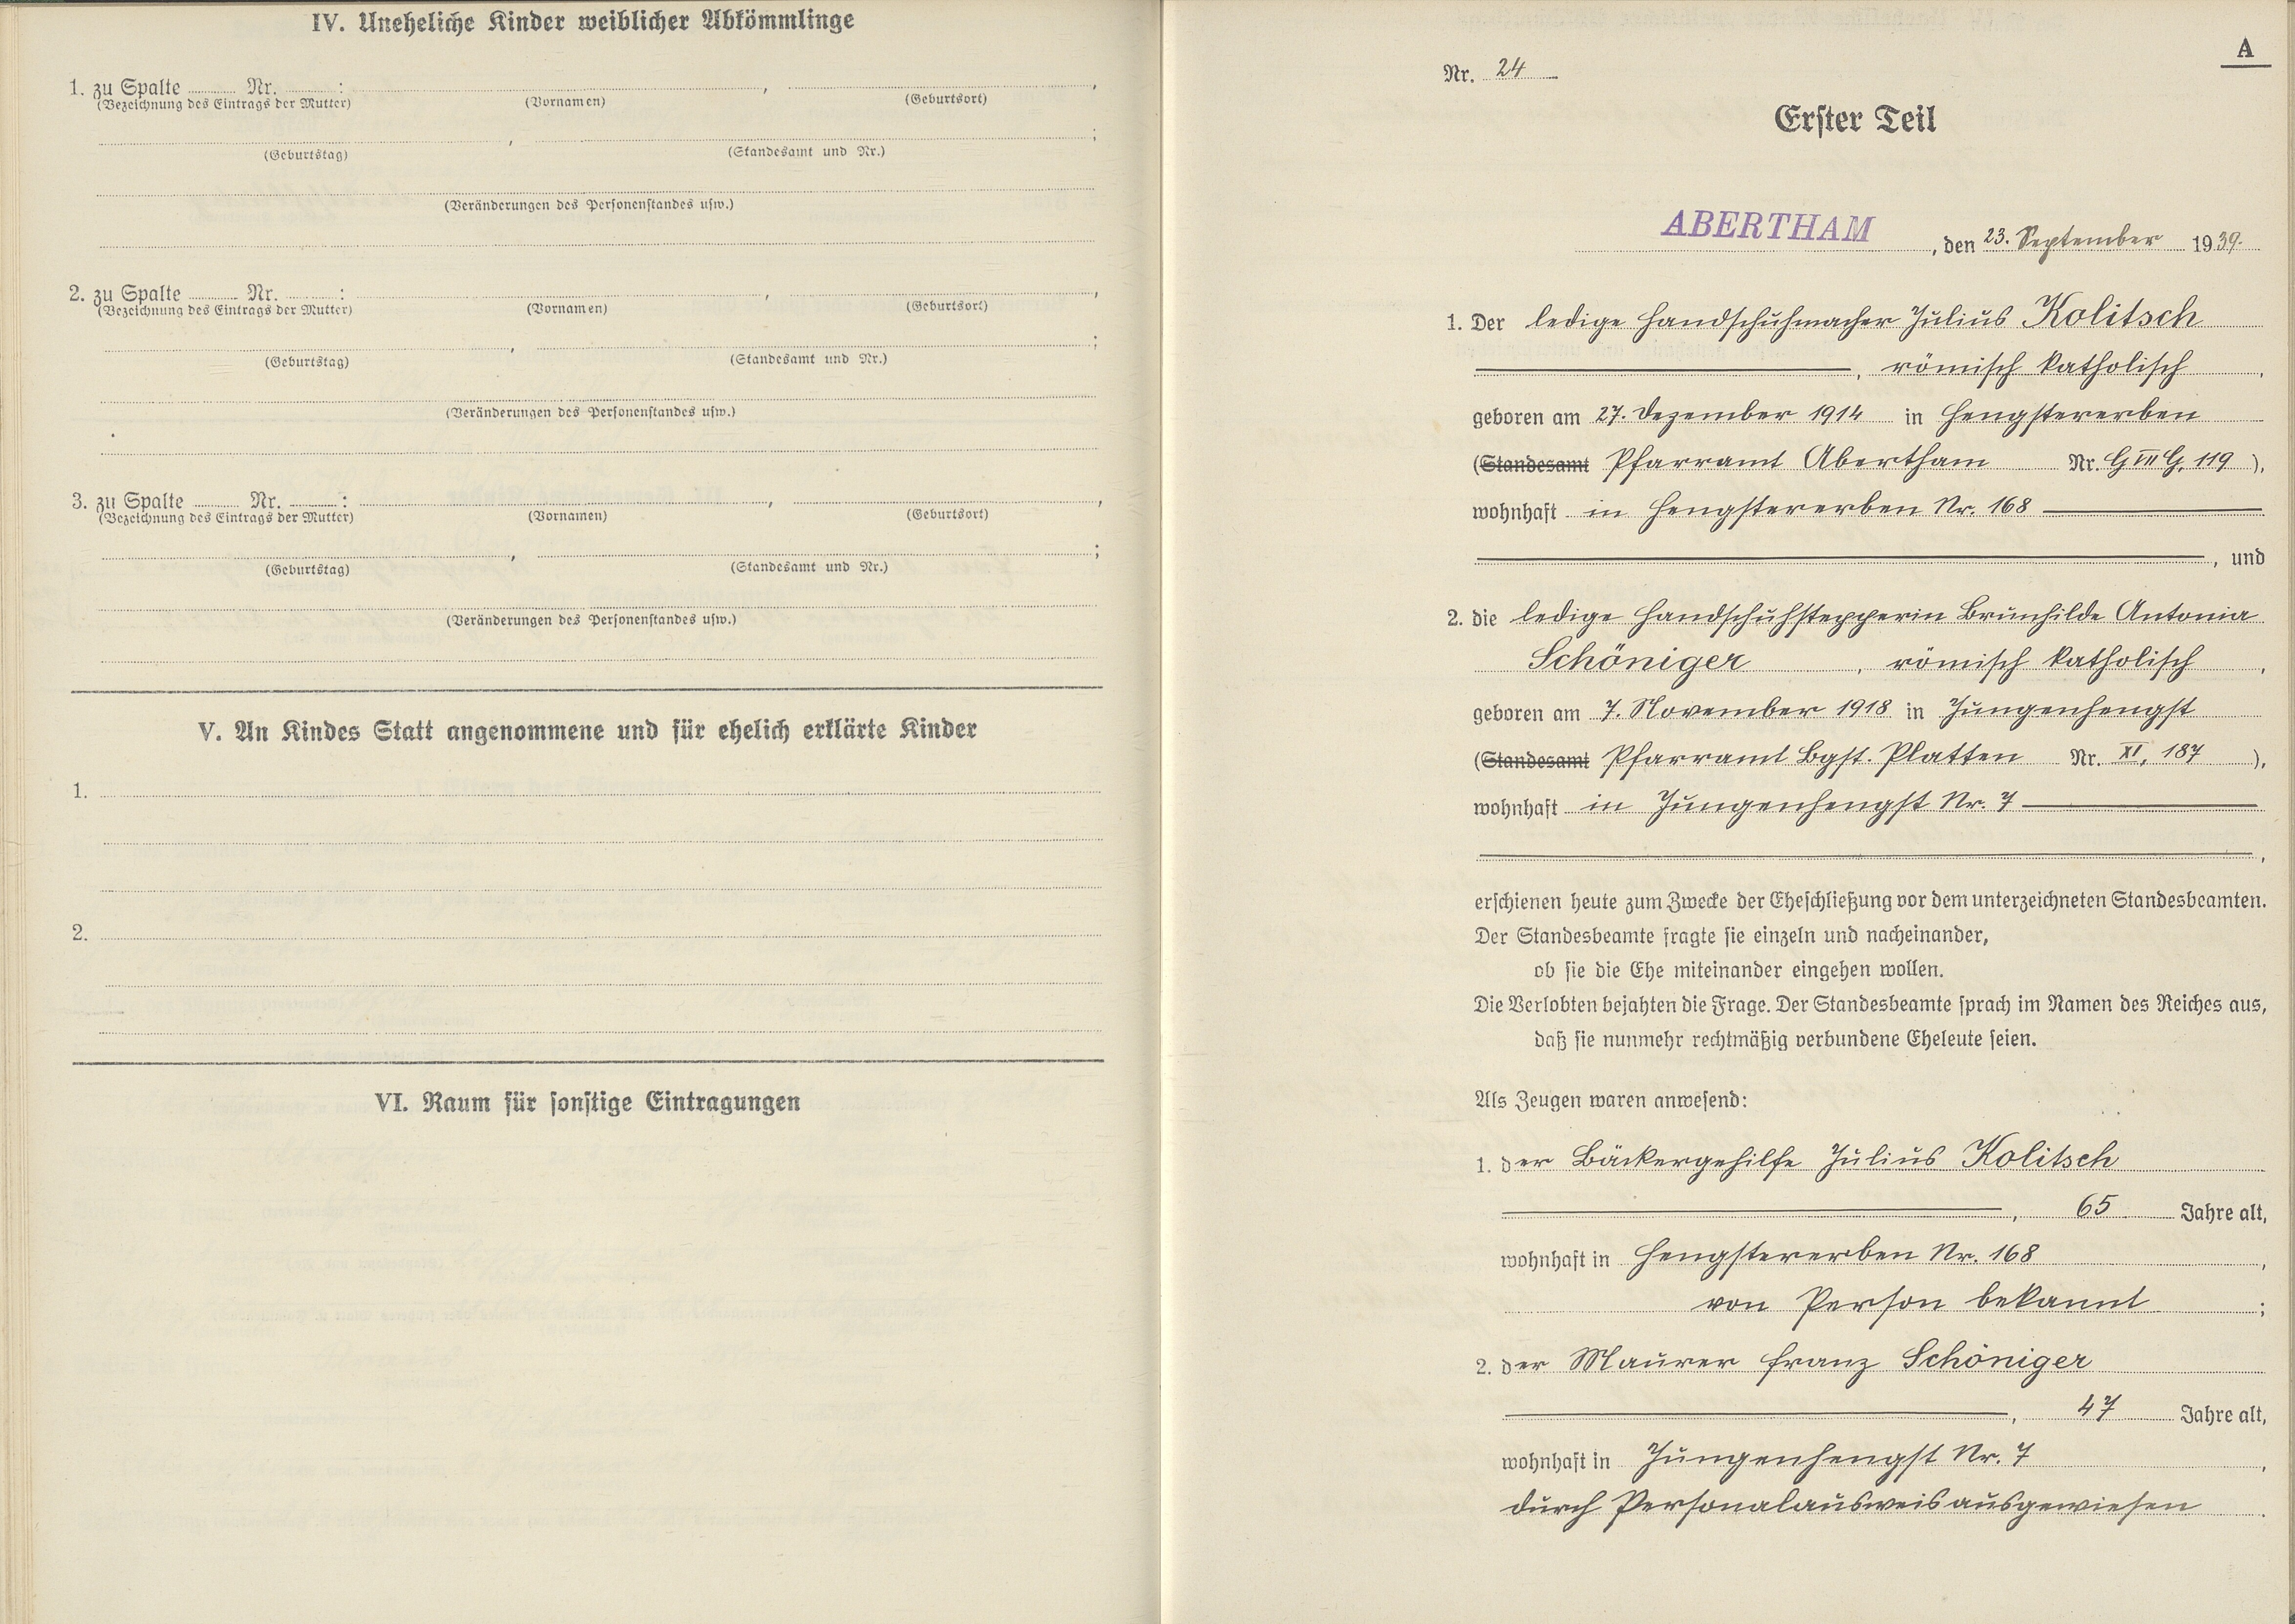 IV. Uneheliche Kinder weiblicher Abkömmlinge
1. zu Spalte ........ Nr. ........ : ........ , ........ ,
(Bezeichnung des Eintrags der Mutter) (Vornamen) (Geburtsort)
........ , ........ ;
(Geburtstag) (Standesamt und Nr.)
(Veränderungen des Personenstandes usw.)
2. zu Spalte ........ Nr. ........ : ........ , ........ ,
(Bezeichnung des Eintrags der Mutter) (Vornamen) (Geburtsort)
........ , ........ ;
(Geburtstag) (Standesamt und Nr.)
(Veränderungen des Personenstandes usw.)
3. zu Spalte ........ Nr. ........ : ........ , ........ ,
(Bezeichnung des Eintrags der Mutter) (Vornamen) (Geburtsort)
........ , ........ ;
(Geburtstag) (Standesamt und Nr.)
(Veränderungen des Personenstandes usw.)
V. An Kindes Statt angenommene und für ehelich erklärte Kinder
1.
2.
VI. Raum für sonstige Eintragungen
A
Nr. 24
Erster Teil
ABERTHAM , den 23. September 1939.
1. Der ledige Handschuhmacher Julius Kolitsch
, römisch katholisch ,
geboren am 27. Dezember 1914 in Hengstererben
(Standesamt Pfarramt Abertham Nr. G VII G, 119 ),
wohnhaft in Hengstererben Nr. 168
, und
2. die ledige Handschuhstepperin Brunhilde Antonia
Schöniger , römisch katholisch ,
geboren am 7. November 1918 in Jungenhengst
(Standesamt Pfarramt Bgst. Platten Nr. XI, 187 ),
wohnhaft in Jungenhengst Nr. 7
,
erschienen heute zum Zwecke der Eheschließung vor dem unterzeichneten Standesbeamten.
Der Standesbeamte fragte sie einzeln und nacheinander,
ob sie die Ehe miteinander eingehen wollen.
Die Verlobten bejahten die Frage. Der Standesbeamte sprach im Namen des Reiches aus,
daß sie nunmehr rechtmäßig verbundene Eheleute seien.
Als Zeugen waren anwesend:
1. der Bäckergehilfe Julius Kolitsch
, 65 Jahre alt,
wohnhaft in Hengstererben Nr. 168 ,
von Person bekannt ;
2. der Maurer Franz Schöniger
, 47 Jahre alt,
wohnhaft in Jungenhengst Nr. 7 ,
durch Personalausweis ausgewiesen .